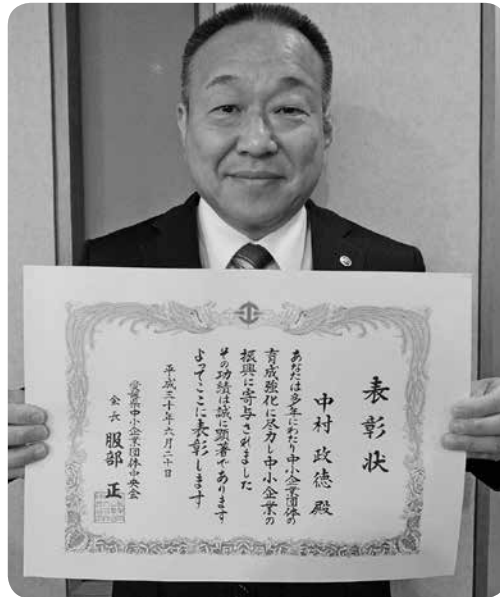 表彰状
中村政徳 殿
あなたは多年にわたり中小企業団体の
育成強化に尽力し中小企業の
振興に寄与されました
その功績は誠に顕著であります
よってここに表彰します
平成三十年六月二十日
愛媛県中小企業団体中央会
会長 服部 正